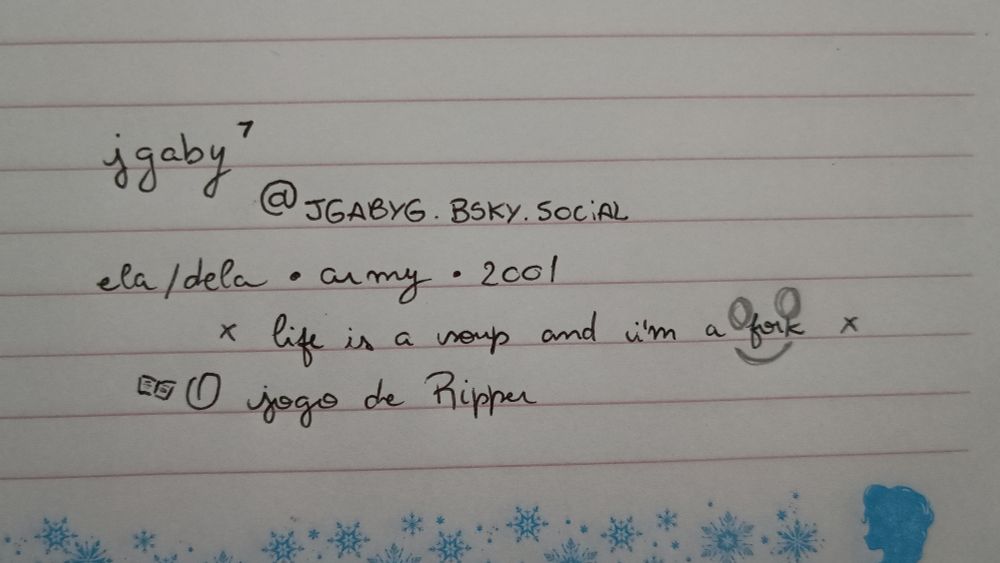 jgaby⁷
@JGABYG.BSKY.SOCiAL
ela/dela • army • 2001
x life is a soup and i'm a fork x
📖 ① jogo de Ripper